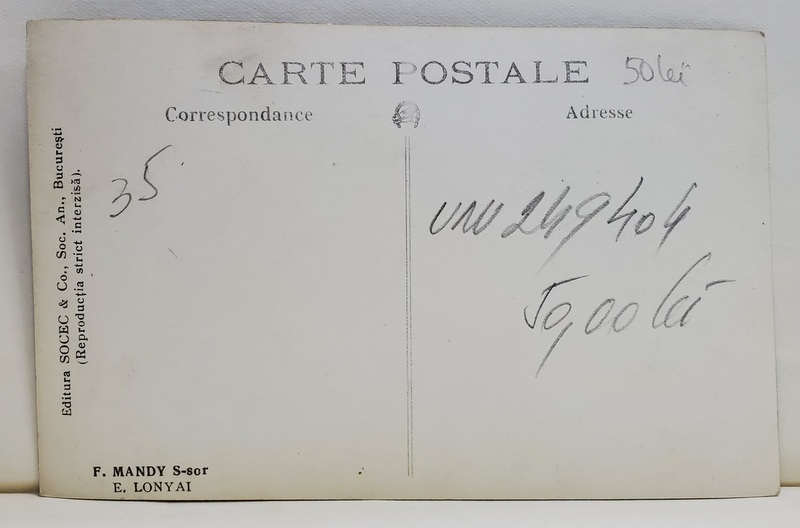 CARTE POSTALE 50 lei
Correspondance
Adresse
Editura SOCEC & Co., Soc. An., Bucureşti
(Reproducţia strict interzisă).
35
249404
50,00 lei
F. MANDY S-sor
E. LONYAI